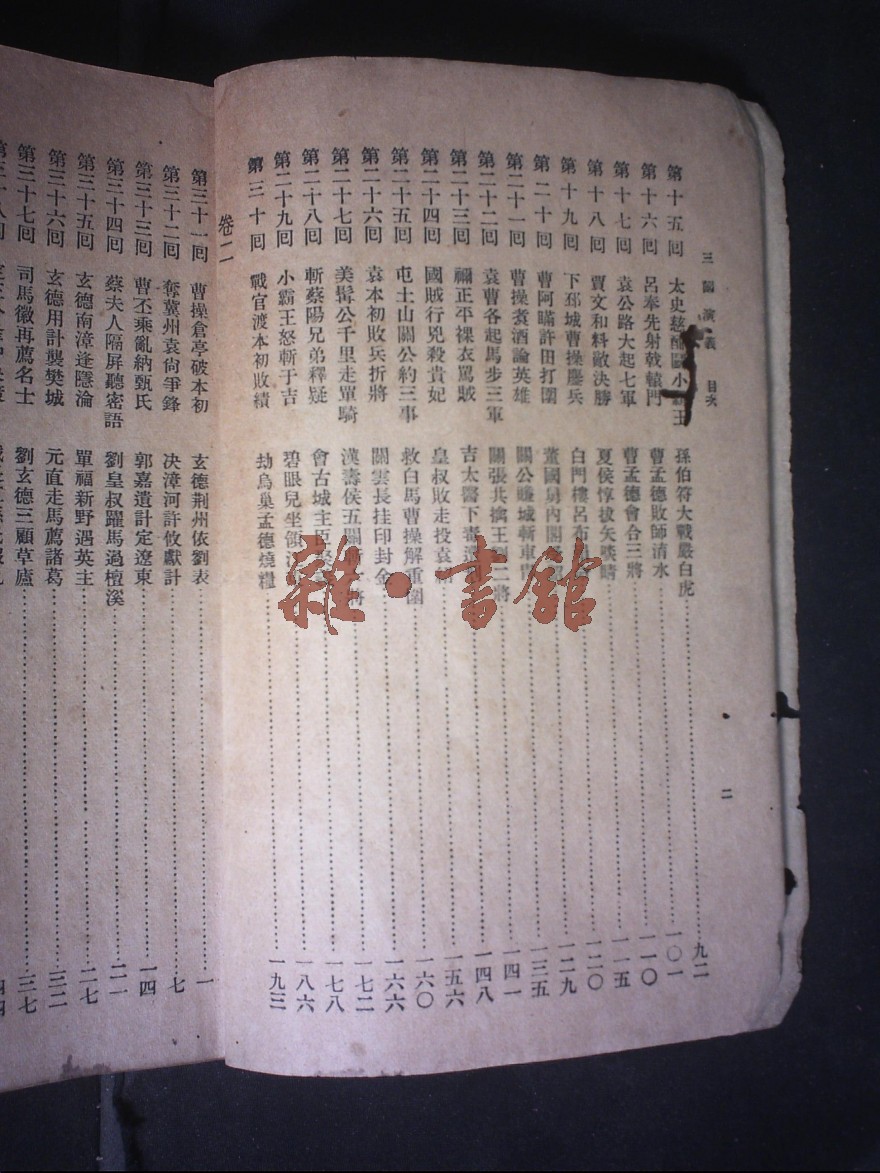 三國演義 目次
二
第十五回 太史慈酣鬬小霸王 孫伯符大戰嚴白虎 九二
第十六回 呂奉先射戟轅門 曹孟德敗師淯水 一〇一
第十七回 袁公路大起七軍 曹孟德會合三將 一一〇
第十八回 賈文和料敵決勝 夏侯惇拔矢啖睛 一一五
第十九回 下邳城曹操鏖兵 白門樓呂布 一二〇
第二十回 曹阿瞞許田打圍 董國舅內閣 一二九
第二十一回 曹操煑酒論英雄 關公賺城斬車 一三五
第二十二回 袁曹各起馬步三軍 關張共擒王 二將 一四一
第二十三回 禰正平裸衣罵賊 吉太醫下毒 一四八
第二十四回 國賊行兇殺貴妃 皇叔敗走投袁 一五六
第二十五回 屯土山關公約三事 救白馬曹操解重圍 一六〇
第二十六回 袁本初敗兵折將 關雲長挂印封金 一六六
第二十七回 美髯公千里走單騎 漢壽侯五關斬 將 一七二
第二十八回 斬蔡陽兄弟釋疑 會古城主臣聚 一七八
第二十九回 小霸王怒斬于吉 碧眼兒坐領江 一八六
第三十回 戰官渡本初敗績 劫烏巢孟德燒糧 一九三
卷二
第三十一回 曹操倉亭破本初 玄德荆州依劉表 一
第三十二回 奪冀州袁尙爭鋒 決漳河許攸獻計 七
第三十三回 曹丕乘亂納甄氏 郭嘉遺計定遼東 一四
第三十四回 蔡夫人隔屏聽密語 劉皇叔躍馬過檀溪 二一
第三十五回 玄德南漳逢隱淪 單福新野遇英主 二七
第三十六回 玄德用計襲樊城 元直走馬薦諸葛 三二
第三十七回 司馬徽再薦名士 劉玄德三顧草廬 三七
第三十八回
雜·書館